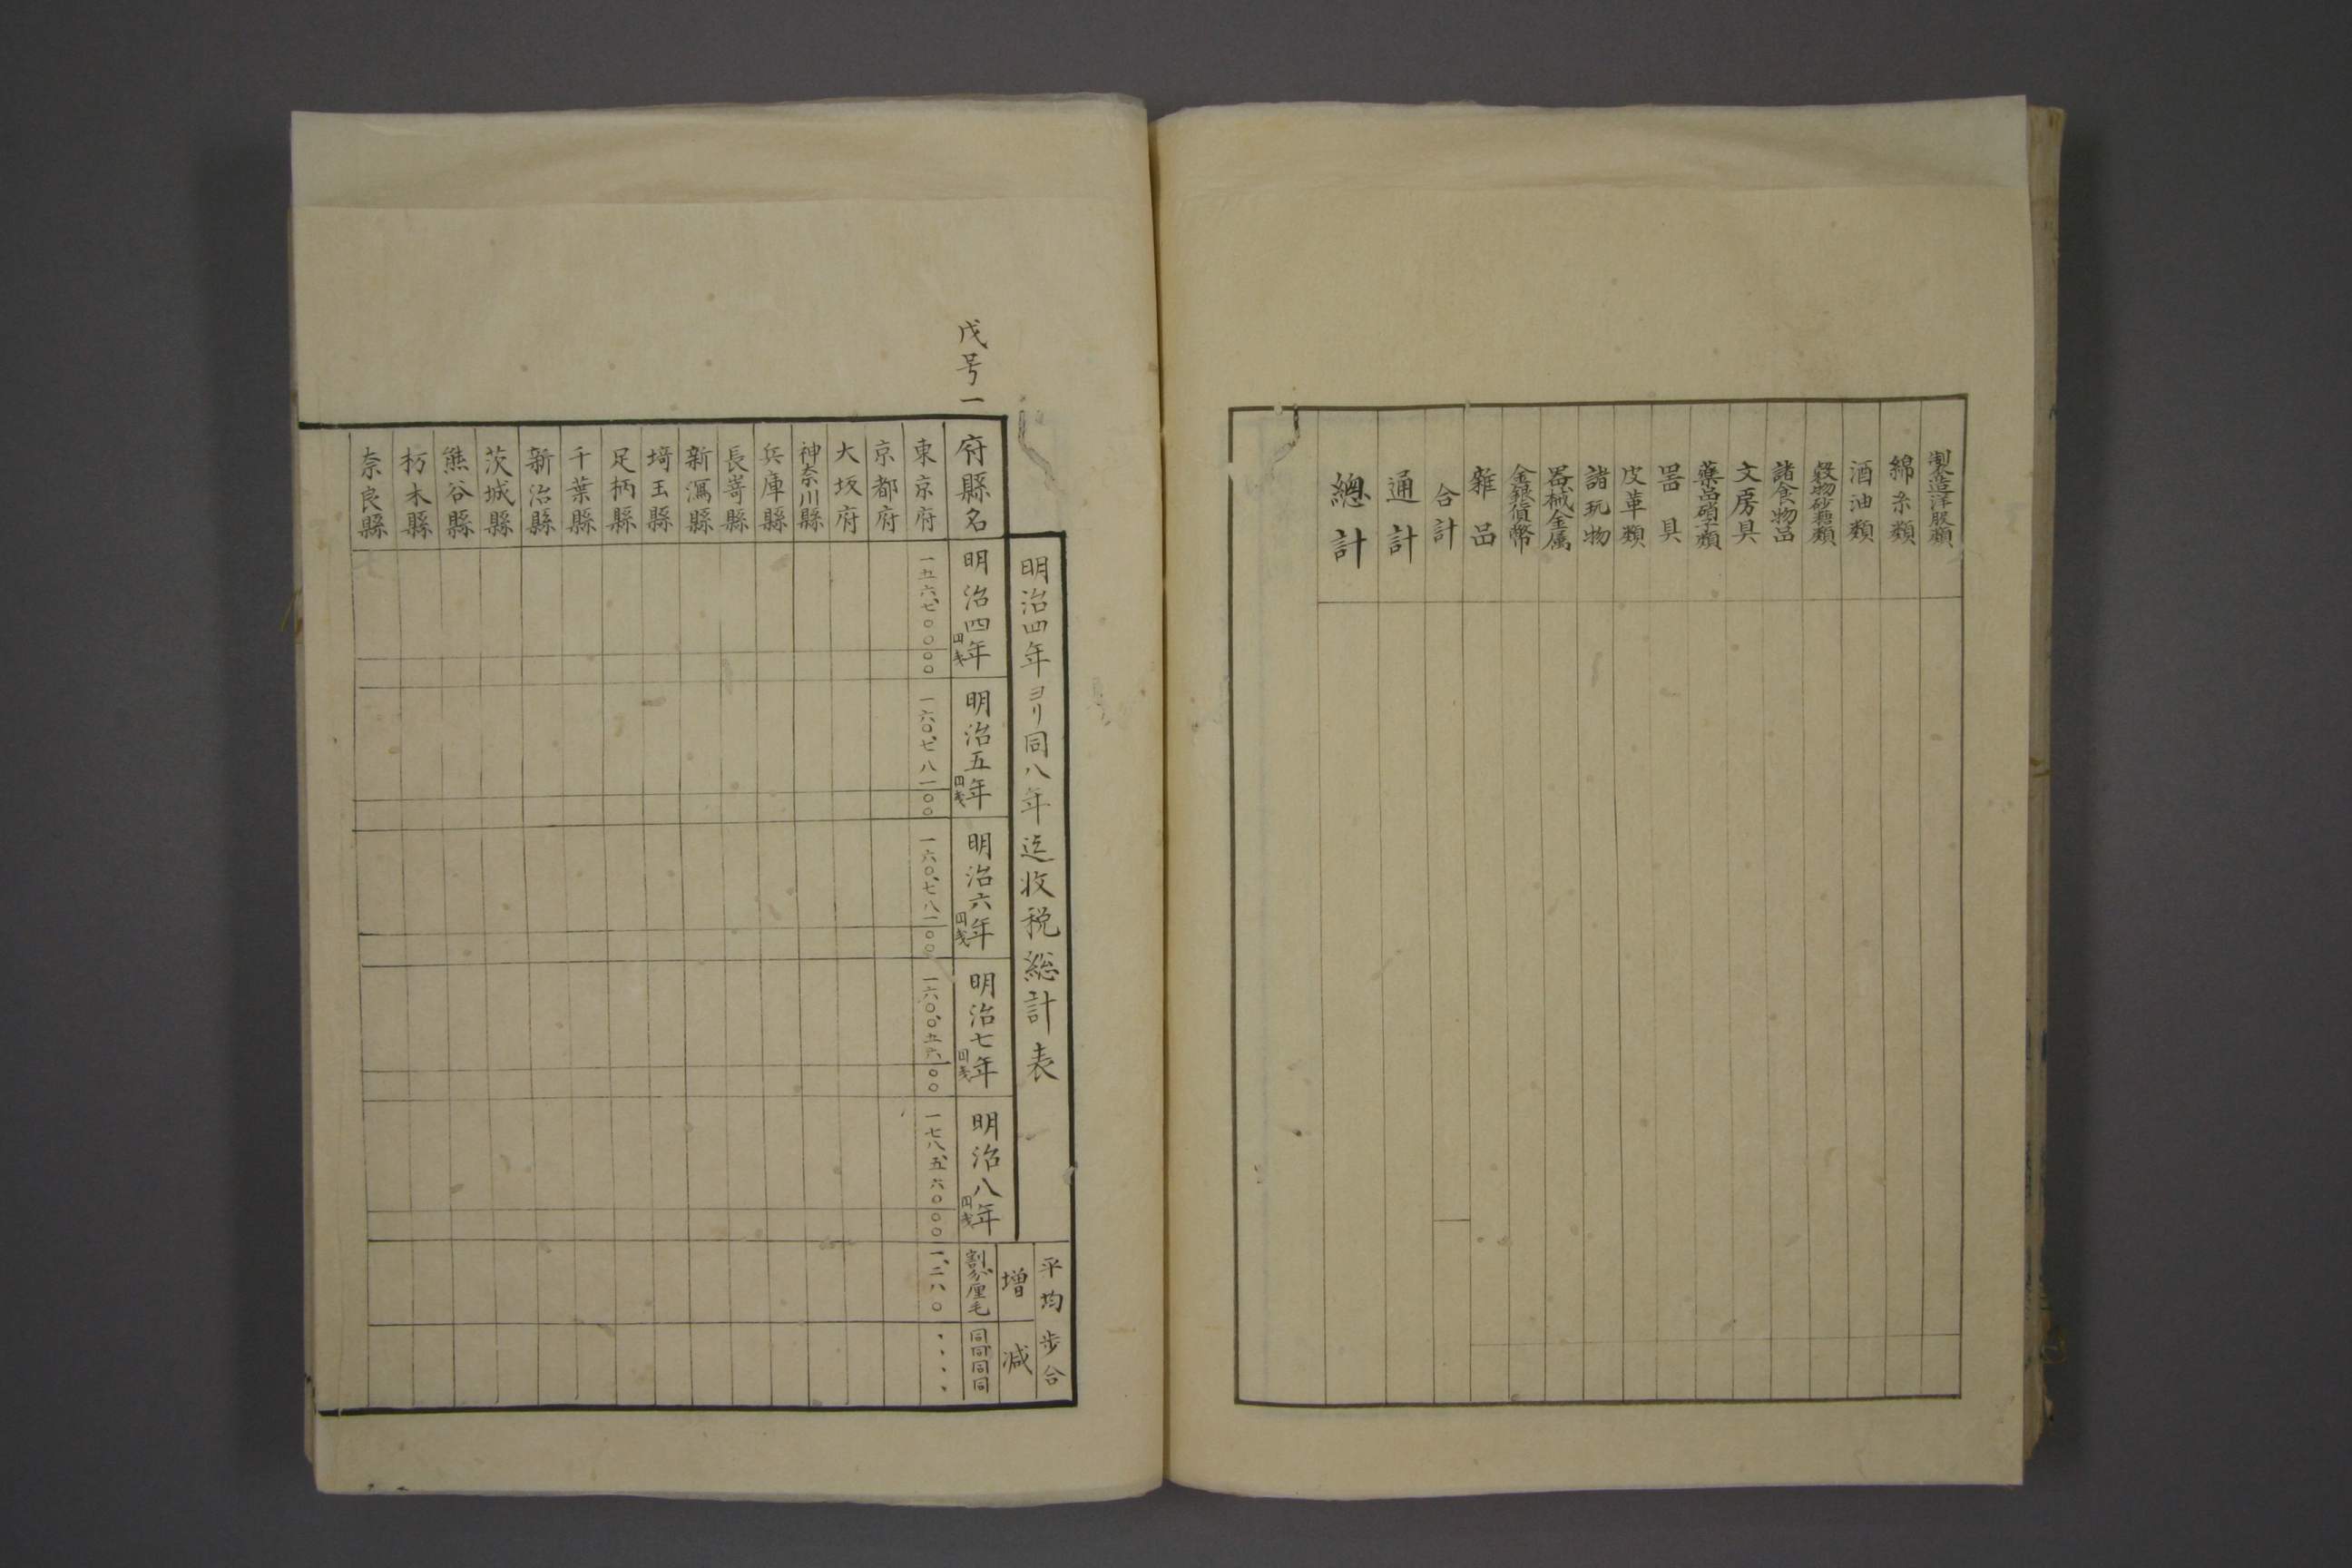 製造洋服類
綿糸類
酒油類
穀物砂糖類
諸食物品
文房具
藥品硝子類
噐具
皮革類
諸玩物
噐械金属
金銀貨幣
雜品
合計
通計
總計
戊号一
明治四年ヨリ同八年迄收税総計表
平均歩合
増
减
府縣名
明治四年
円戋
明治五年
円戋
明治六年
円戋
明治七年
円戋
明治八年
円戋
割分厘毛
同同同同
東京府
一五六、七〇〇〇〇
一六〇、七八一〇〇
一六〇、七八一〇〇
一六〇、〇五六〇〇
一七八、五六〇〇〇
一、二八〇
、、、、
京都府
大坂府
神奈川縣
兵庫縣
長嵜縣
新潟縣
埼玉縣
足柄縣
千葉縣
新治縣
茨城縣
熊谷縣
栃木縣
奈良縣